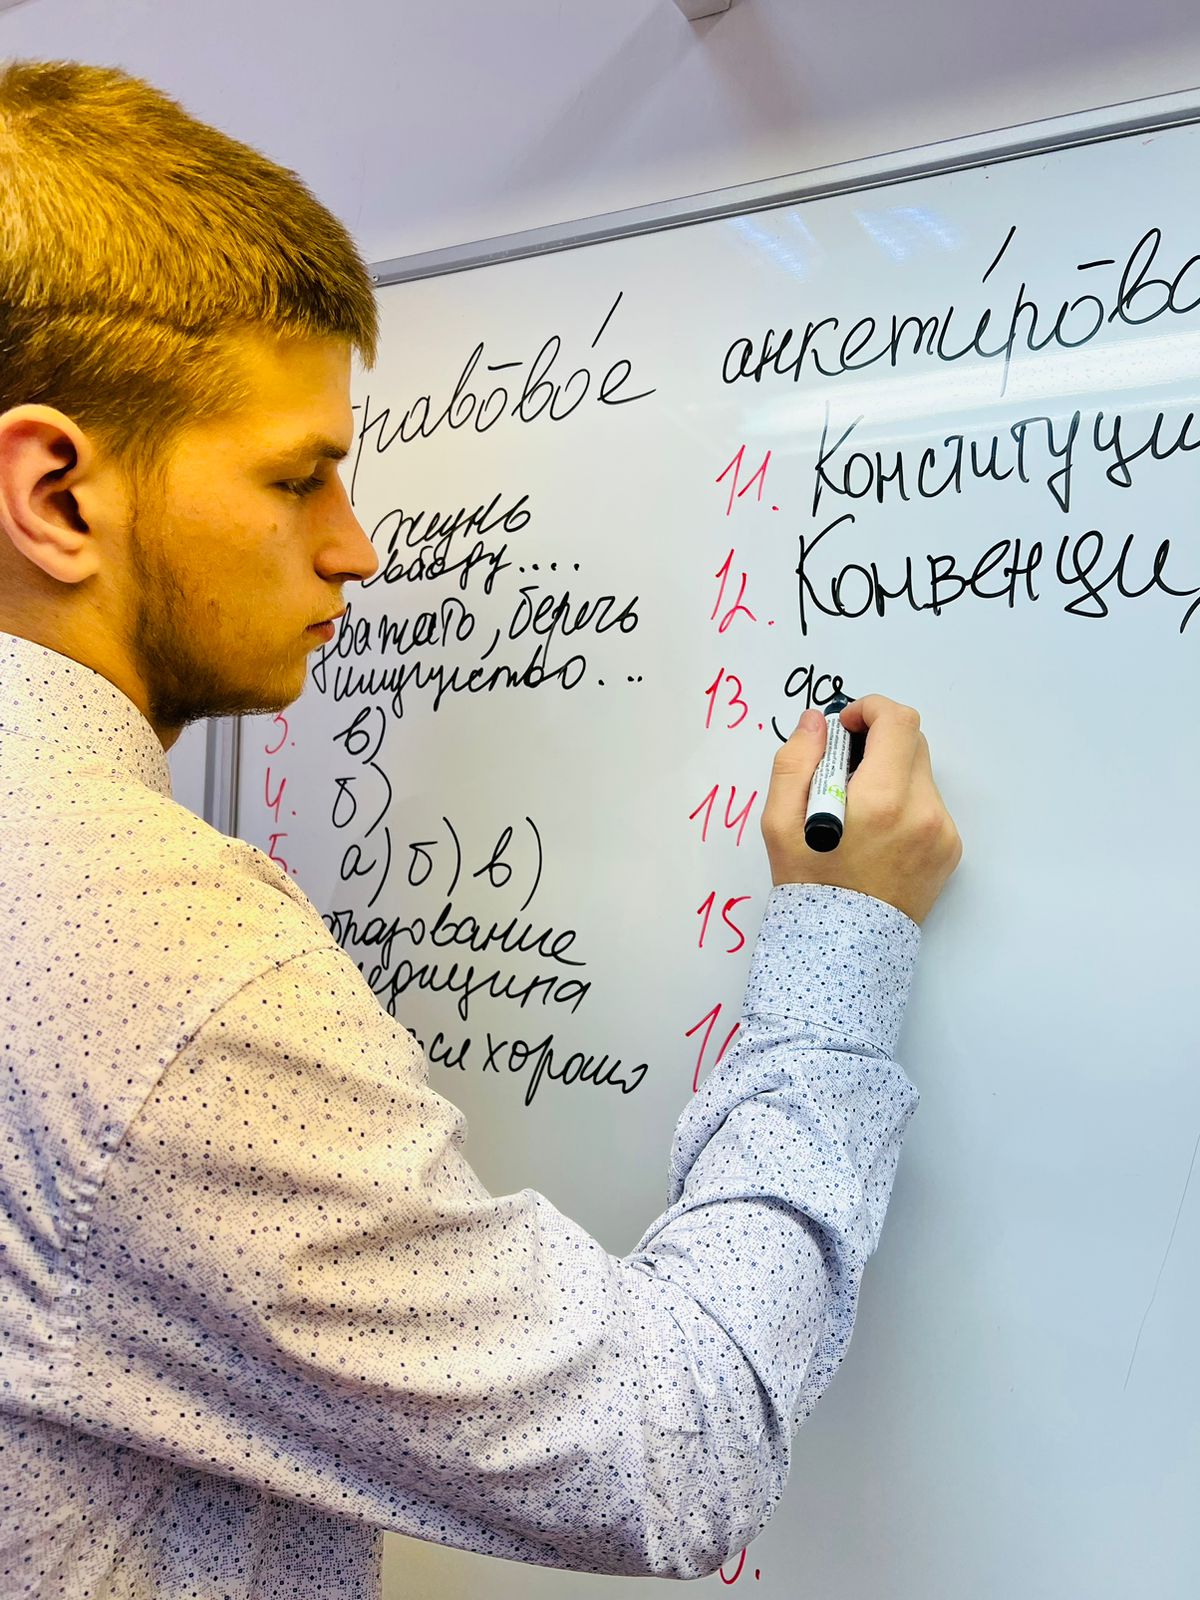 равовое анкетирова
жизнь
свободу....
уважать, беречь
имущество...
3. в)
4. б)
5. а) б) в)
образование
медицина
ься хорошо
11. Конституци
12. Конвенци
13. да
14
15